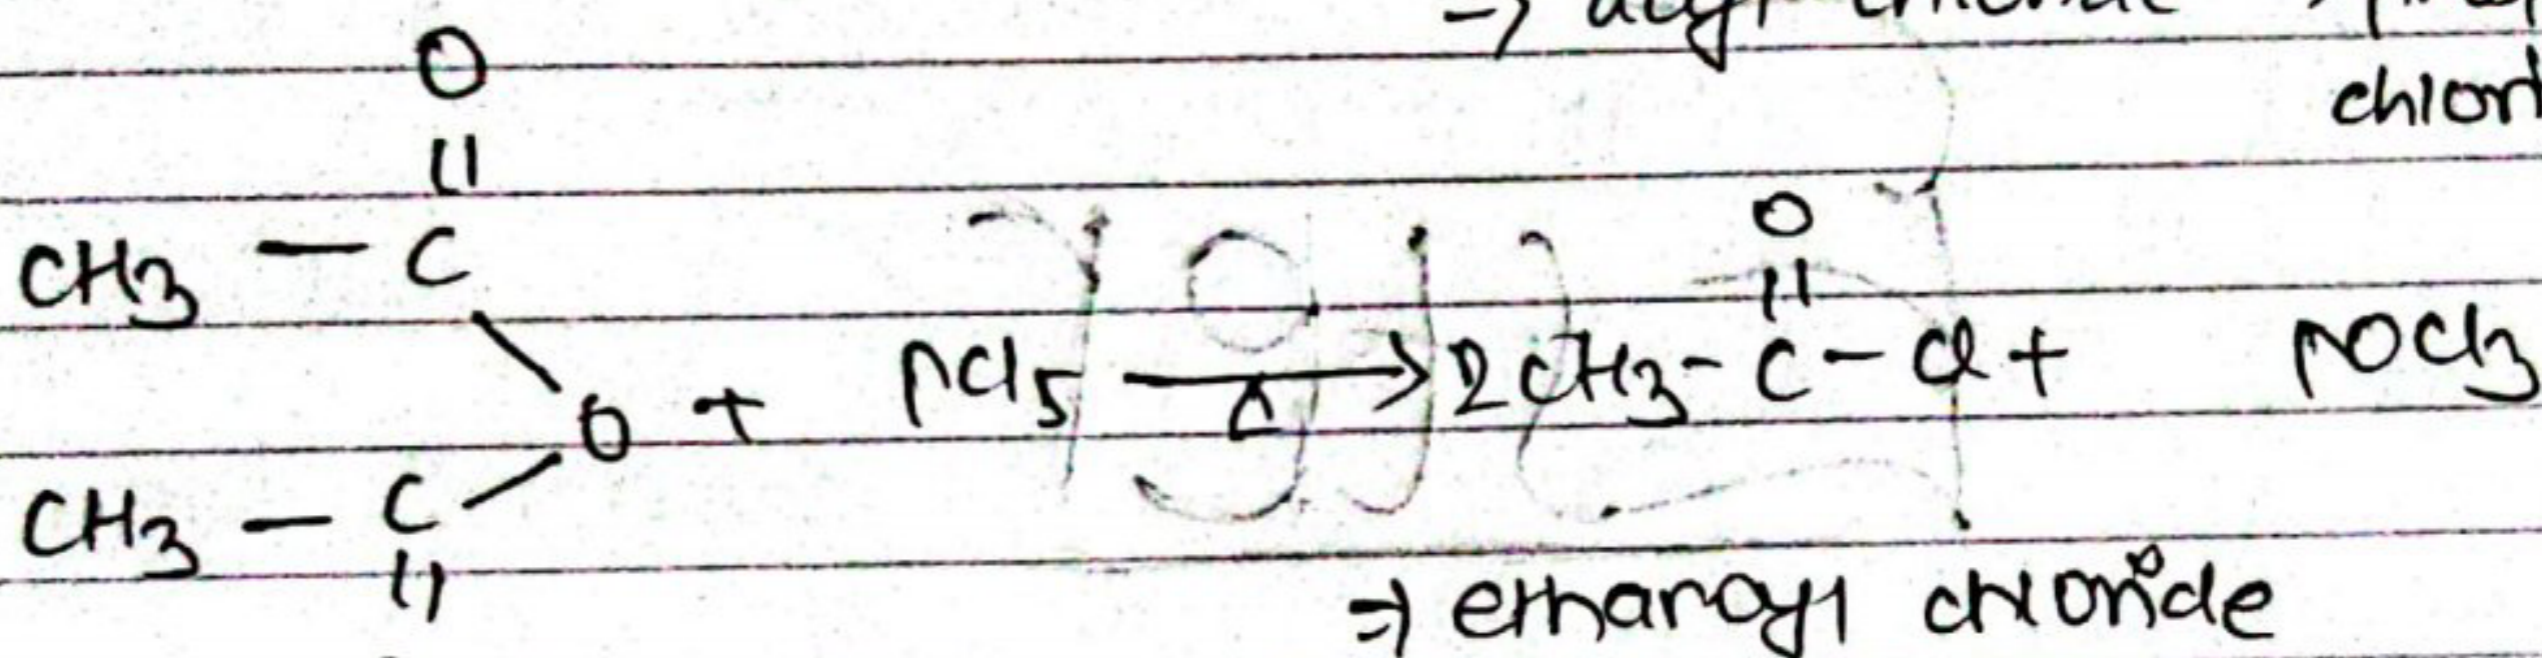 ⇒ acyl chloride
chlori
O
||
O
||
CH3 — C
O + PCl5 →Δ 2CH3 - C - Cl + POCl3
CH3 — C
||
⇒ ethanoyl chloride